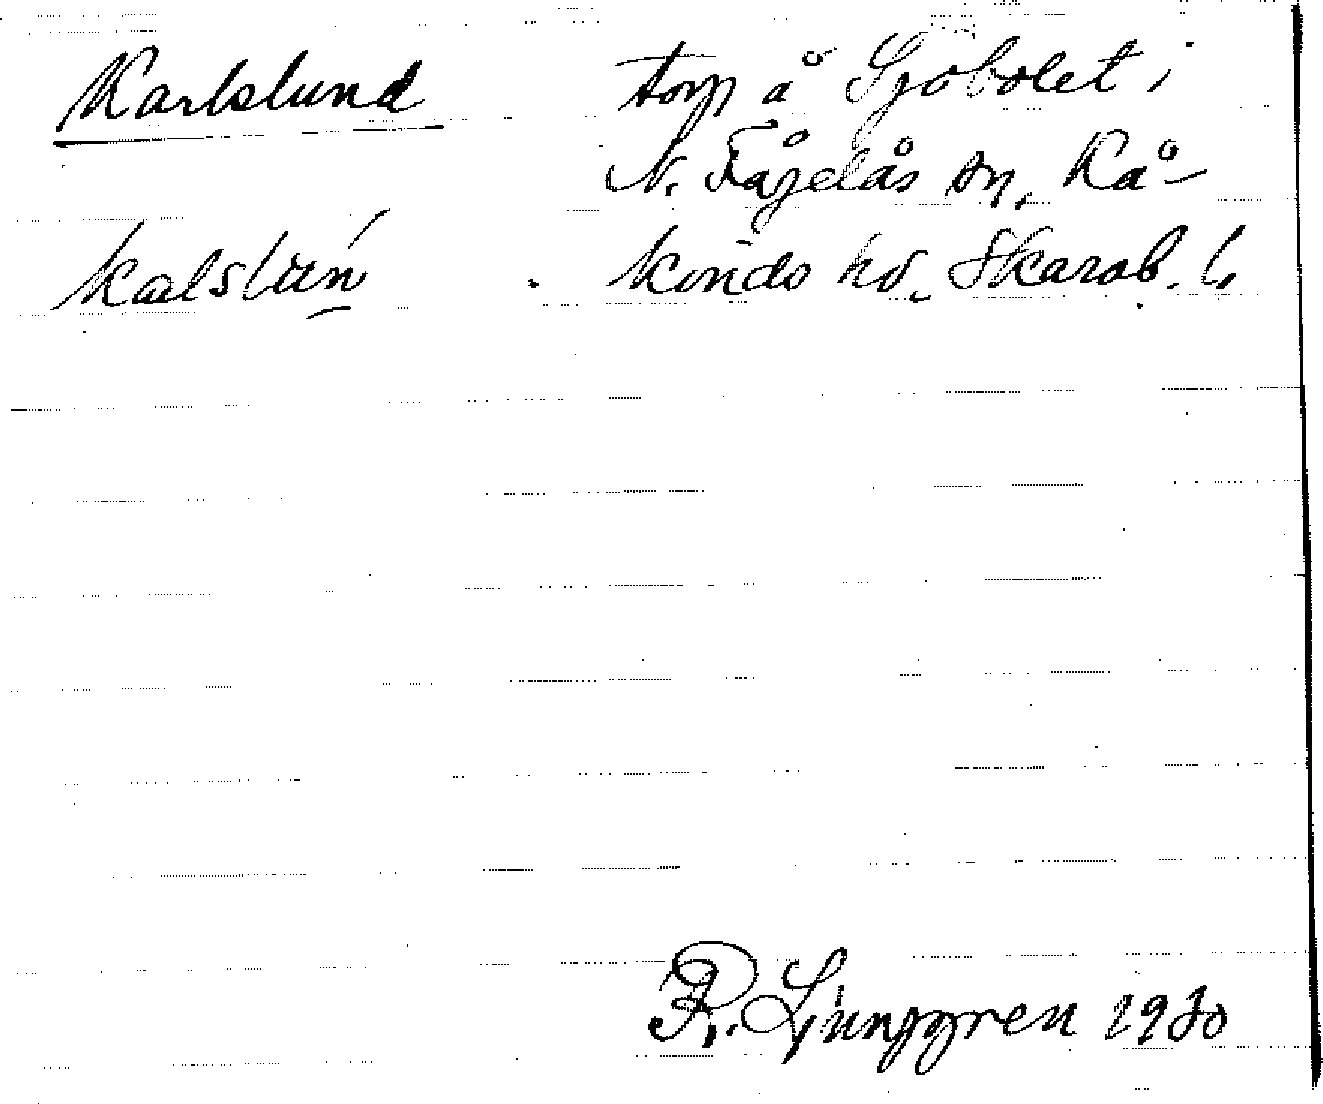 Karlslund
torp å Sjöbolet i
N. Fågelås sn, Kå-
kinds hd. Skarab. l.
R. Ljunggren 1930